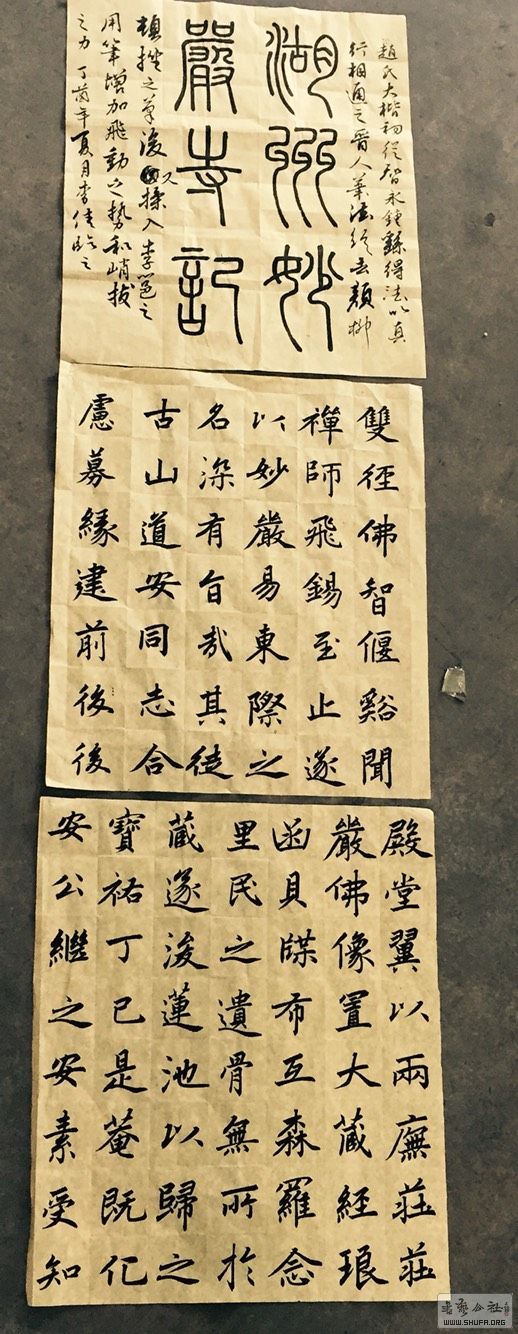 趙氏大楷初從智永鍾繇得法以真
行相通之晉人筆法後去顏柳
湖州妙
嚴寺記
頓挫之筆後又揉入李邕之
用筆增加飛動之勢和峭拔
之力 丁酉年夏月李佳臨之
雙徑佛智偃谿聞
禪師飛錫至止遂
以妙嚴易東際之
名深有旨哉其徒
古山道安同志合
慮募緣建前後後
殿堂翼以兩廡莊莊
嚴佛像置大藏經琅
函貝牒布互森羅念
里民之遺骨無所於
藏遂浚蓮池以歸之
寶祐丁巳是菴既化
安公繼之安素受知
書藝公社
WWW.SHUFA.ORG